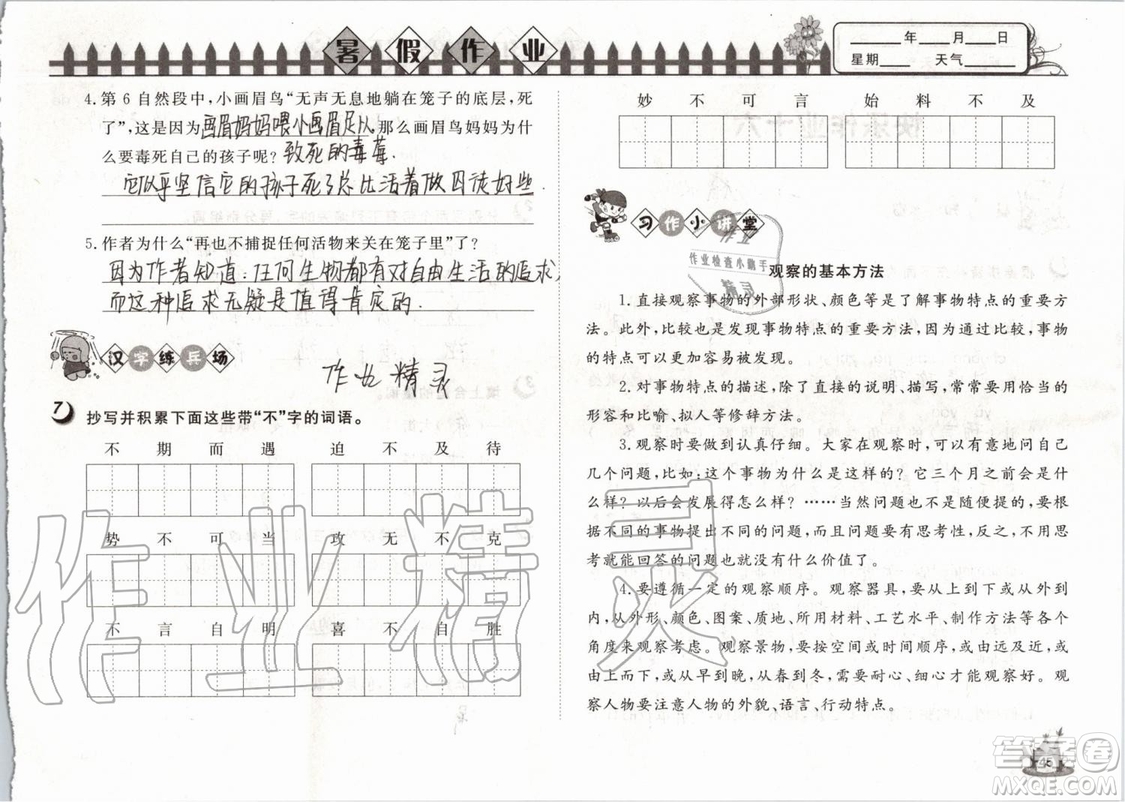 暑假作业
____年____月____日
星期____ 天气____
4. 第 6 自然段中，小画眉鸟“无声无息地躺在笼子的底层，死
了”，这是因为画眉妈妈喂小画眉足以，那么画眉鸟妈妈为什
么要毒死自己的孩子呢？致死的毒莓.
它似乎坚信它的孩子死了总比活着做囚徒好些
5. 作者为什么“再也不捕捉任何活物来关在笼子里”了？
因为作者知道：任何生物都有对自由生活的追求，
而这种追求无疑是值得肯定的.
汉字练兵场
作业精灵
7 抄写并积累下面这些带“不”字的词语。
不期而遇 迫不及待
势不可当 攻无不克
不言自明 喜不自胜
妙不可言 始料不及
习作小讲堂
作业检查小助手
精灵
观察的基本方法
1. 直接观察事物的外部形状、颜色等是了解事物特点的重要方
法。此外，比较也是发现事物特点的重要方法，因为通过比较，事物
的不同之处更加容易被发现。
2. 对事物特点的描述，除了直接的说明、描写，常常要用恰当的
形容和比喻、拟人等修辞方法。
3. 观察时要做到认真仔细。大家在观察时，可以有意地问自己
几个问题，比如：这个事物为什么是这样的？它三个月之前会是什
么样？以后会发展得怎么样？……当然问题也不是随便提的，要根
据不同的事物提出不同的问题，而且问题要有思考性，反之，不用思
考就能回答的问题也就没什么价值了。
4. 要遵循一定的观察顺序。观察器具，从上到下或从外到
内，从外形、颜色、图案、质地、所用材料、工艺水平、制作方法等各个
角度来观察考虑。观察景物，要按空间或方向的顺序，或者时间顺
序，从早到晚，从春到冬，需要耐心、细心才能观察好。观
察人物要注意人物的外貌、语言、行动特点。
作业精灵
45
答案圈
MXQE.COM